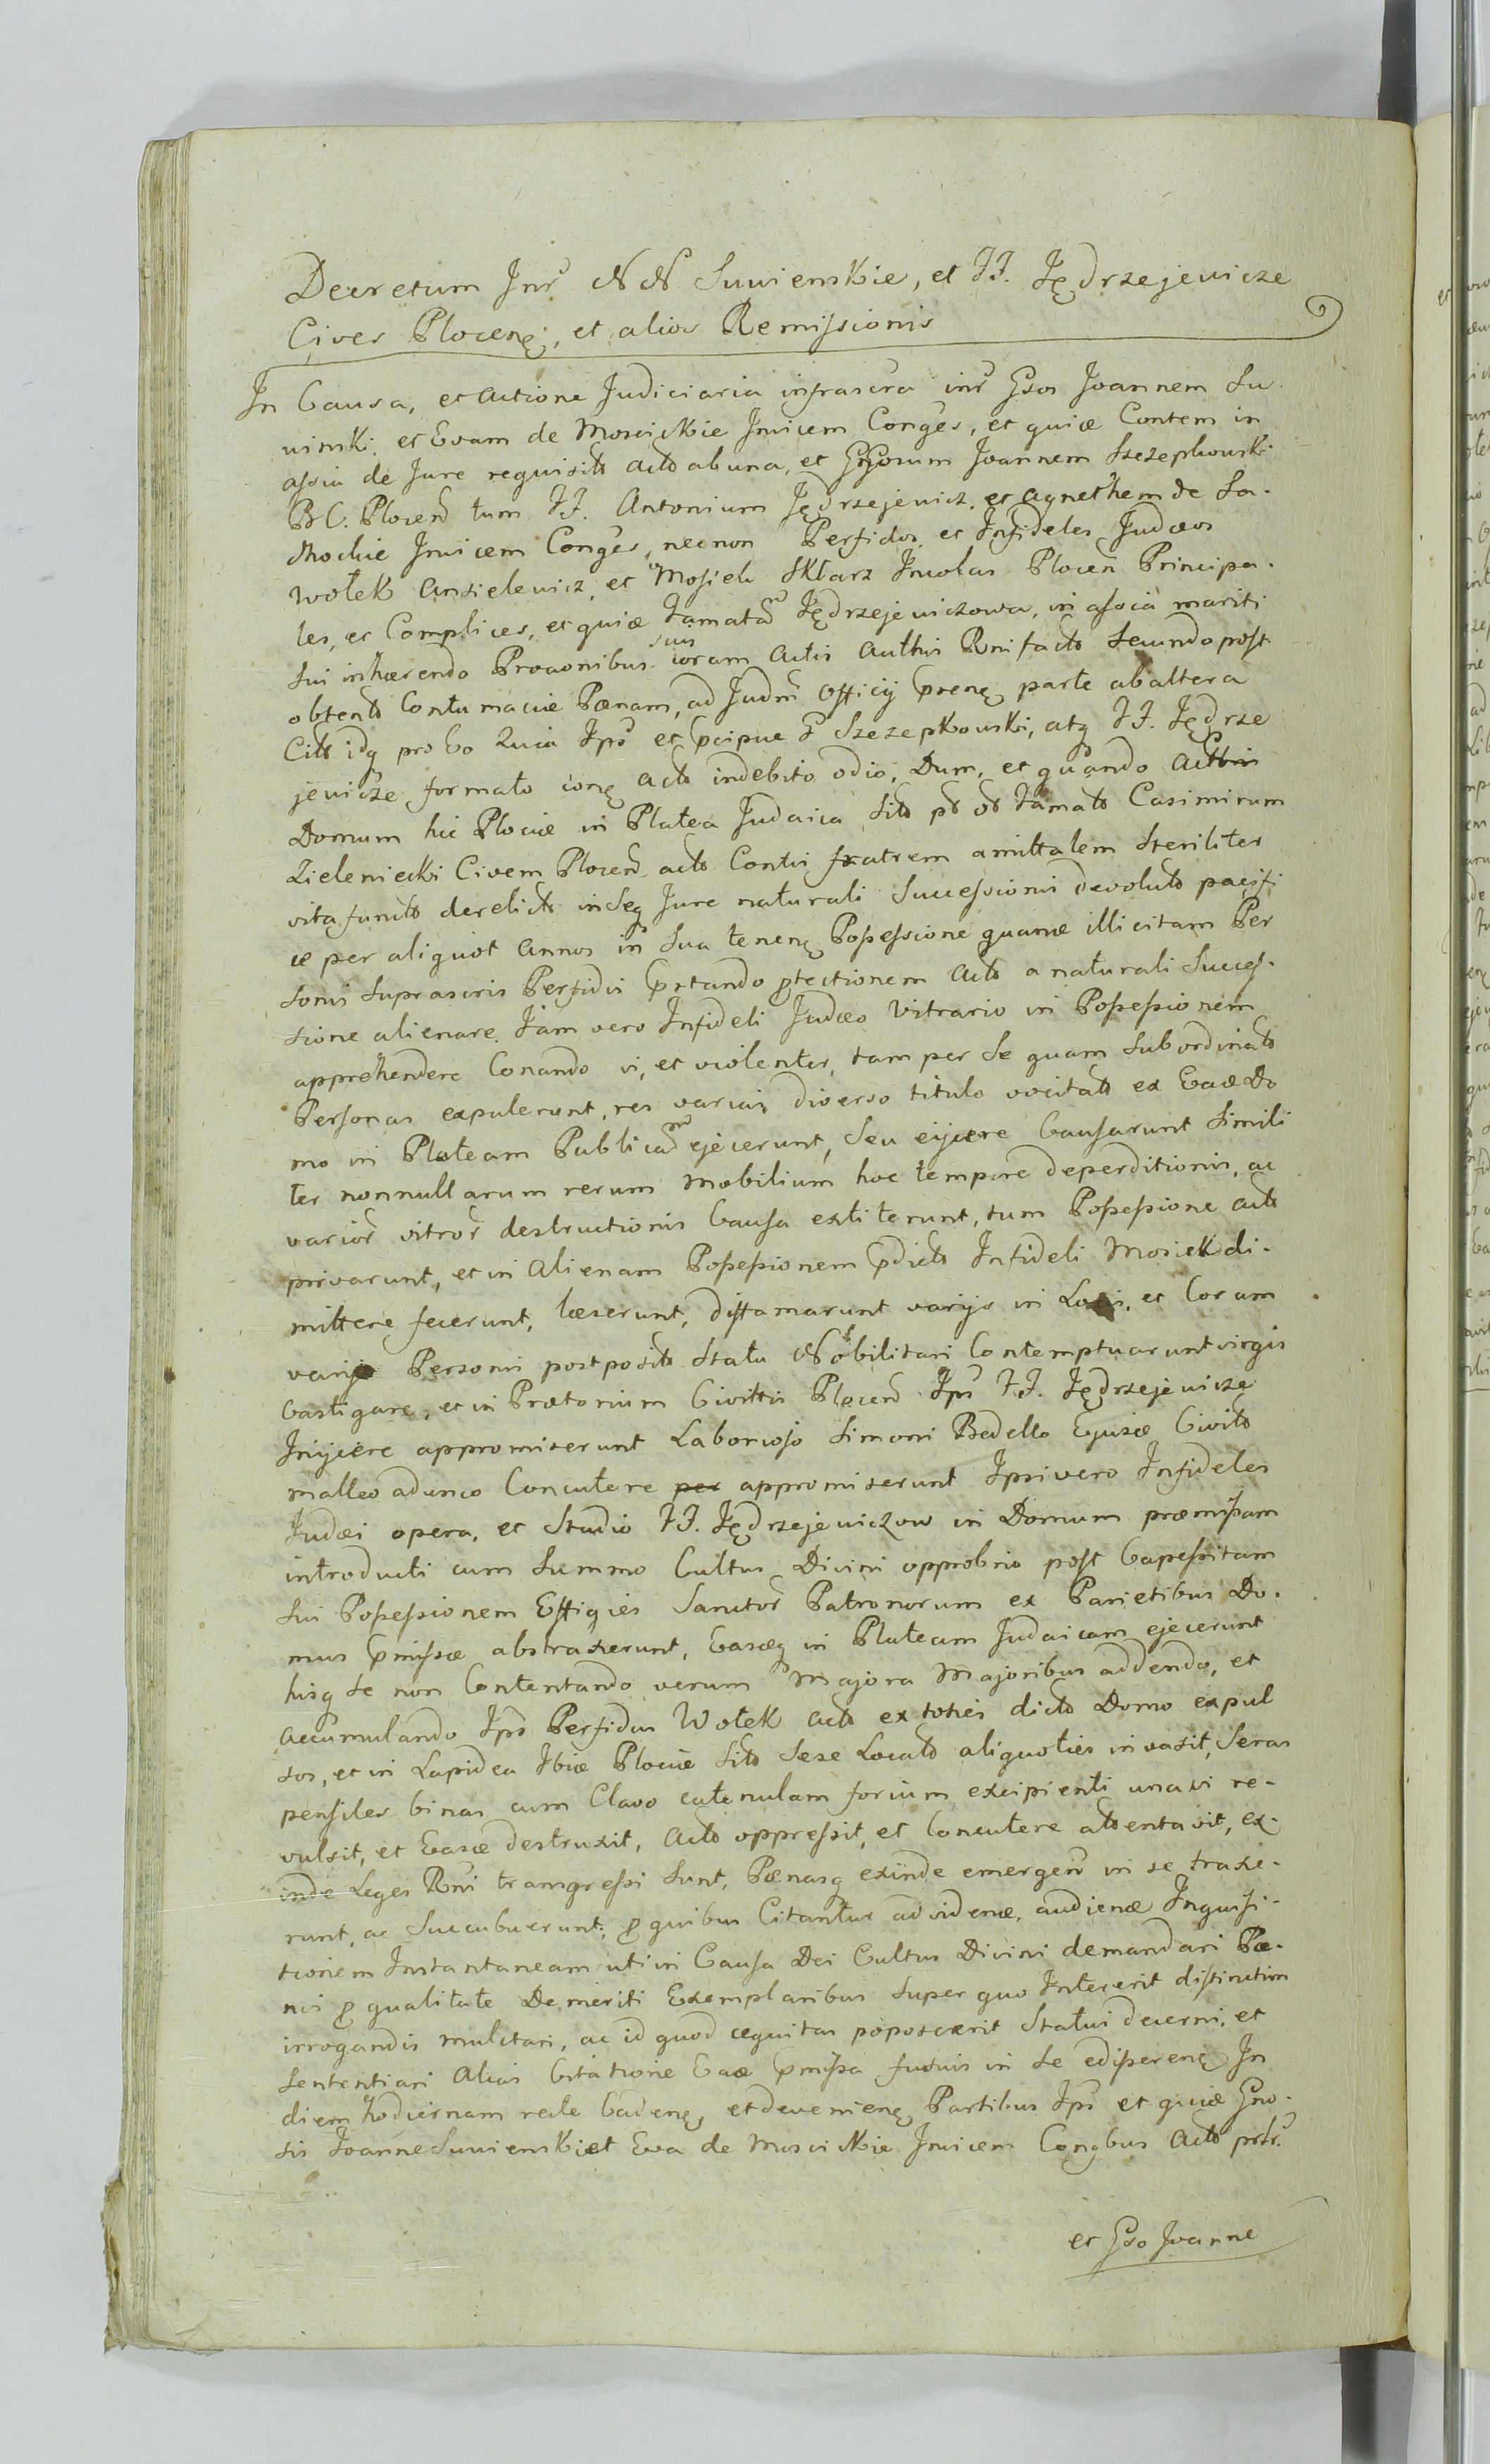 Decretum Inr NN Suwienskie, et FF. Jędrzejewicze
Cives Plocenę, et alios Remissionis
In Causa, et actione Judiciaria infrascra inr Gsos Joannem Su
wienski et Evam de Moscickie Invicem Conges, et quiæ Contem in
assia de Jure requisito acto ab una, et Gnosum Joannem Szczepkowski
B C. Plocen tum FF. Antonium Jędrzejewicz, et Agnethem de La-
chockie Invicem Conges, necnon Perfidos, et Infideles Judæos
Wołek Anzielewicz, et Mosiek Sklarz Incolas Plocen Principa-
les, et Complices, et quiæ famatam Jędrzejewiczowa, in assia mariti
sui inhærendo Proaonibus suis coram Actis Authis Rnifacto secundo post
obtento Contumaciæ Pænam, ad Judm Officij Præsenę parte ab altera
Cito idq pro Eo Quia Ipsi et Præcipue G Szczepkowski, atq FF. Jędrze
jewicze formato conę acto indebito odio, Dum, et quando Acthi
Domum hic Plociæ in Platea Judaica sito pt ot famato Casimirum
Zieleniecki Civem Plocen acto Conthi fratrem amittalem steriliter
vita functo derelicto in seq Jure naturali Successionis devoluto pacifi
ce per aliquot Annos in sua tenenę Possessione quamæ illicitam Per
sonis suprascris Perfidis Præstando Protectionem acto a naturali Succes-
sione alienare. Iam vero Infideli Judæo Vitrario in Possessionem
apprehendere Conando vi, et violenter, tam per Se quam subordinato
Personas expulerunt, res varias diverso titulo vocitato ex Eaæ Do
mo in Plateam Publicam ejecerunt, Seu eijcere Causarunt Simili
ter nonnullarum rerum mobilium hoc tempore deperditionis, ac
varior vitror destructionis Causa extiterunt, tum Possessione acto
privarunt, et in Alienam Possessionem Prædicto Infideli Mosiek di-
mittere fecerunt, læserunt, diffamarunt varijs in Locis, et Coram
varijs Personis postposito Statu Nobilitari Contemptuarunt virgis
Castigare, et in Prætorium Civittis Plocen Ipsi FF. Jędrzejewicze
Inijcere appromiserunt Laborioso Simoni Bedello Ejusæ Civito
malleo adunco Concutere per appromiserunt Ipsi vero Infideles
Judæi opera, et Studio FF. Jędrzejewiczow in Domum præmissam
introducti cum Summo Cultus Divini opprobrio post Capessitam
sui Possessionem Effigies Sanctor Patronorum ex Parietibus Do-
mus Præmissæ abstraxerunt, Easæq in Plateam Judaicam ejecerunt
hisq se non Contentando verum Majora Majoribus addendo, et
accumulando Ipse Perfidus Wołek acto ex toties dicto Domo expul
sos, et in Lapidea Ibiæ Plociæ sito Sese Locato aliquoties invasit, Seras
pensiles binas cum Clavo catenulam forium excipienti una vi re-
vulsit, et Easæ destruxit, Acto oppressit, et Concutere attentavit, ex-
inde Leges Rni transgressi sunt, Pænasq exinde emergen in se traxe-
runt, ac Succubuerunt; Pro quibus Citantur ad videnæ, audienæ Inquisi-
tionem Instantaneam uti in Causa Dei Cultus Divini demandari Pæ-
nis Pro qualitate Demeriti Exemplaribus super quo Intererit distinctim
irrogandis mulctari, ac id quod æquitas poposcerit Statui decerni, et
sententiari Alias Citatione Eaæ Præmissa fusius in se edisserenę In
diem hodiernam recte Cadenę, et devenienę Partibus Ipsi et quiæ Gno-
sis Joanne Suwienski et Eva de Moscickie Invicem Congbus Acto prtr.
et Gso Joanne